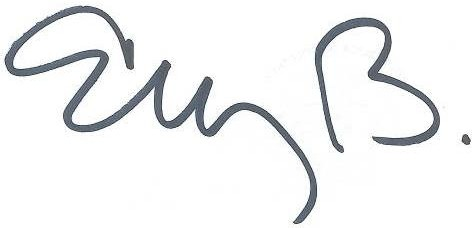 Elly B.